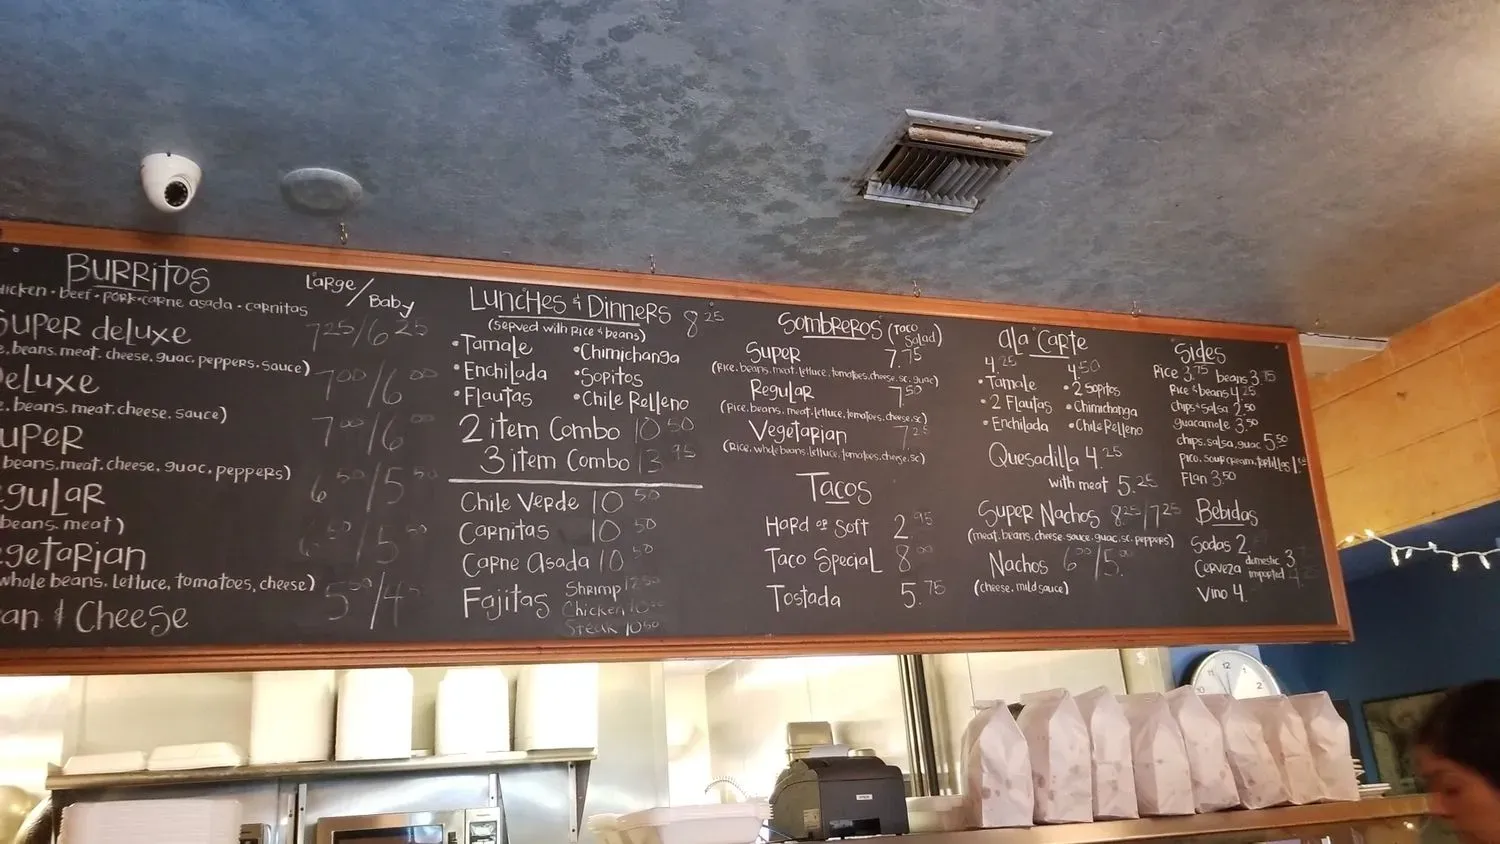 BURRITOS
LARGE/BABY
beef • pork • carne asada • carnitas
SUPER deluxe 7 25/6 25
beans. meat. cheese, guac, peppers, sauce)
7 00/6 00
beans. meat. cheese, sauce)
7 00/6 00
beans, meat, cheese, guac, peppers)
6 50/5 50
beans. meat)
/5 50
whole beans. lettuce, tomatoes, cheese)
5 00/4
& Cheese
LUNCHES & DINNERS 8 25
(served with rice & beans)
• Tamale • Chimichanga
• Enchilada • Sopitos
• Flautas • Chile Relleno
2 item Combo 10 50
3 item Combo 13 95
Chile Verde 10 50
Carnitas 10 50
Carne Asada 10 50
Fajitas Shrimp 12 50
Chicken 10
Steak 10 50
Sombreros (Taco Salad)
Super 7.75
(Rice, beans, meat, lettuce, tomatoes, cheese, sc, guac)
Regular 7 50
(Rice, beans, meat, lettuce, tomatoes, cheese, sc)
Vegetarian 7 25
(Rice, whole beans, lettuce, tomatoes, cheese, sc)
Tacos
Hard or Soft 2 95
Taco Special 8 00
Tostada 5.75
ala Carte
4 25 4 50
• Tamale • 2 Sopitos
• 2 Flautas • Chimichanga
• Enchilada • Chile Relleno
Quesadilla 4.25
with meat 5.25
Super Nachos 8 25/7 25
(meat, beans, cheese, sauce, guac, sc, peppers)
Nachos 6 00/5.
(cheese, mild sauce)
Sides
Rice 3.75 beans 3.75
Rice & beans 4.25
chips & salsa 2.50
guacamole 3.50
chips, salsa, guac 5.50
pico, sour cream, tortillas 1
Flan 3.50
Bebidas
Sodas 2
Cerveza domestic 3
imported 4
Vino 4.